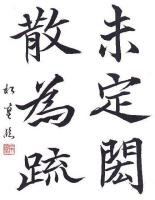 未定閎
散為疏